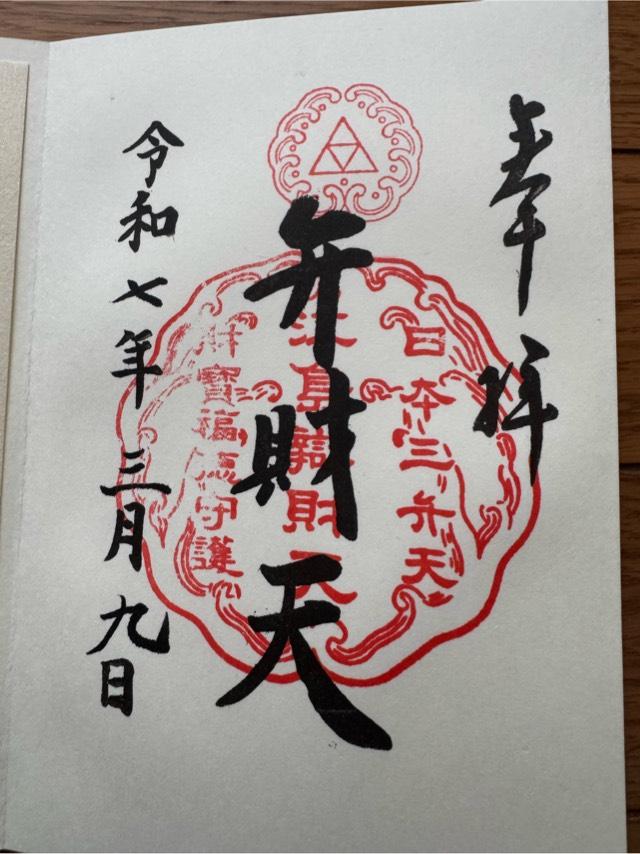 奉拝
日本三弁天
弁財天
江島辯財天
財寶福徳守護
令和七年三月九日